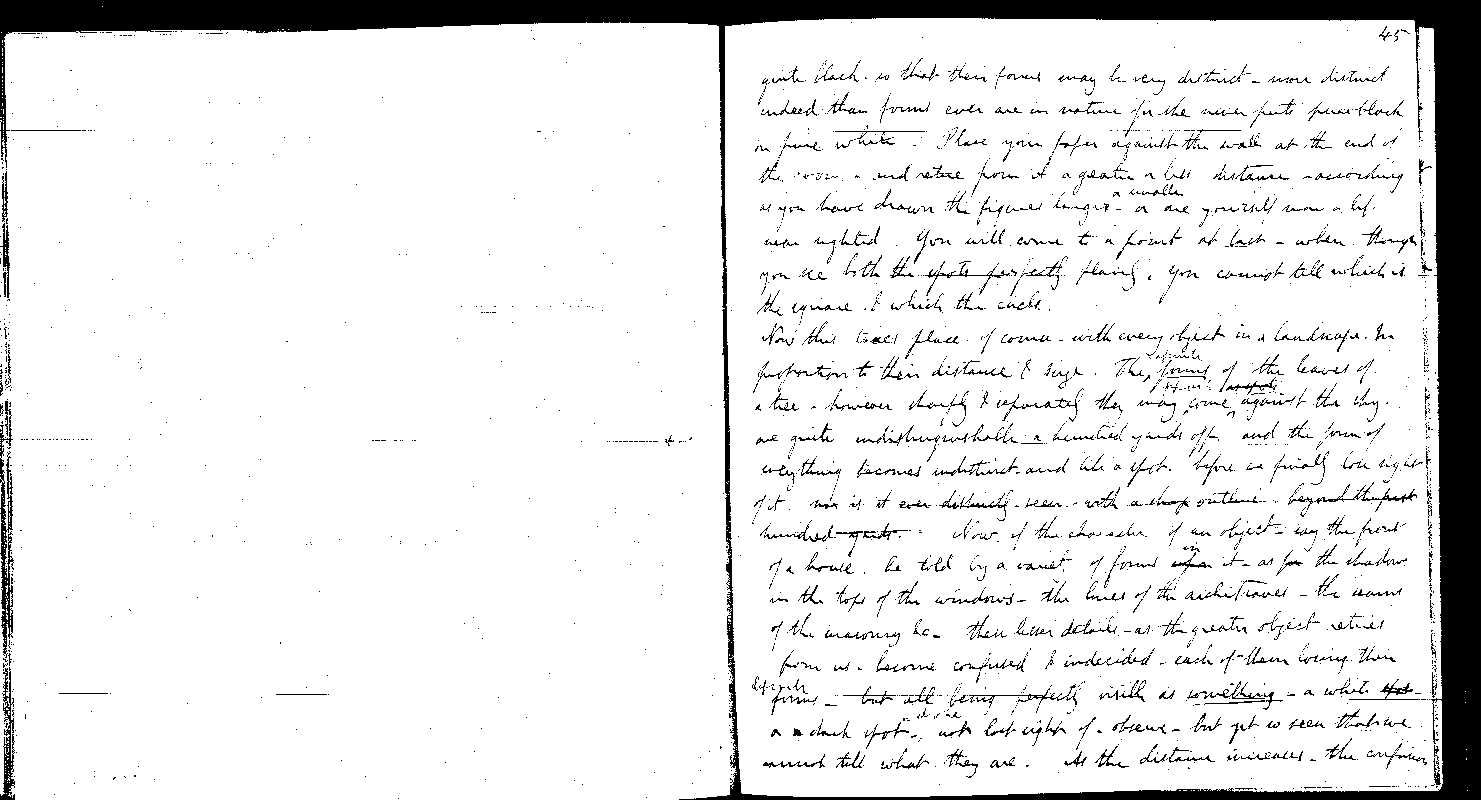 45
quite black. so that their forms may be very distinct - more distinct
indeed than forms ever are in nature for she never puts pure black
on pure white. Place your paper against the wall at the end of
the room - and retire from it a greater or less distance - according
or smaller
as you have drawn the figures larger - or are yourself more or less
near sighted. You will come to a point at last - when though
you see both the spots perfectly plainly, you cannot tell which is
the square & which the circle.
Now this takes place of course - with every object in a landscape. In
definite
proportion to their distance & size. The forms of the leaves of
as spots
a tree - however sharply & separately they may come against the sky.
are quite indistinguishable a hundred yards off, and the form of
everything becomes indistinct - and like a spot. before we finally lose sight
of it. nor is it ever distinctly seen - with a sharp outline - beyond the first
hundred yards. Now, if the character of an object - say the front
in
of a house. be told by a variety of forms upon it - as for the shadows
in the tops of the windows - the lines of the architraves - the seams
of the masonry &c - these lesser details - as the greater object retires
from us - become confused & undecided - each of them losing their
definite
forms - but all being perfectly visible as something - a white spot -
a dark spot - not lost sight of - observe - but yet so seen that we
cannot tell what they are. As the distance increases - the confusion